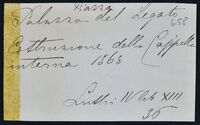 Piazza
Palazzo del Legato
658
Costruzione della Cappella
interna 1563
Luthi IV lib XIII
35